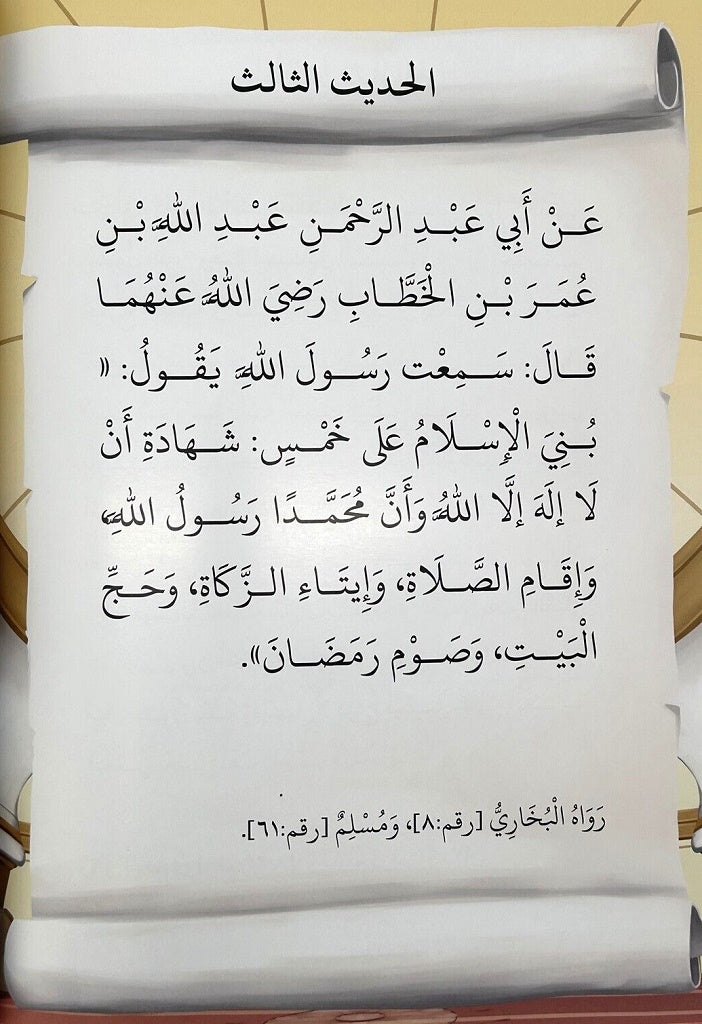 الحديث الثالث
عَنْ أَبِي عَبْدِ الرَّحْمَنِ عَبْدِ اللَّهِ بْنِ
عُمَرَ بْنِ الْخَطَّابِ رَضِيَ اللَّهُ عَنْهُمَا
قَالَ: سَمِعْت رَسُولَ اللَّهِ يَقُولُ: «
بُنِيَ الْإِسْلَامُ عَلَى خَمْسٍ: شَهَادَةِ أَنْ
لَا إلَهَ إلَّا اللَّهُ وَأَنَّ مُحَمَّدًا رَسُولُ اللَّهِ،
وَإِقَامِ الصَّلَاةِ، وَإِيتَاءِ الزَّكَاةِ، وَحَجِّ
الْبَيْتِ، وَصَوْمِ رَمَضَانَ».
رَوَاهُ الْبُخَارِيُّ [رقم:٨]، وَمُسْلِمٌ [رقم:٦١].